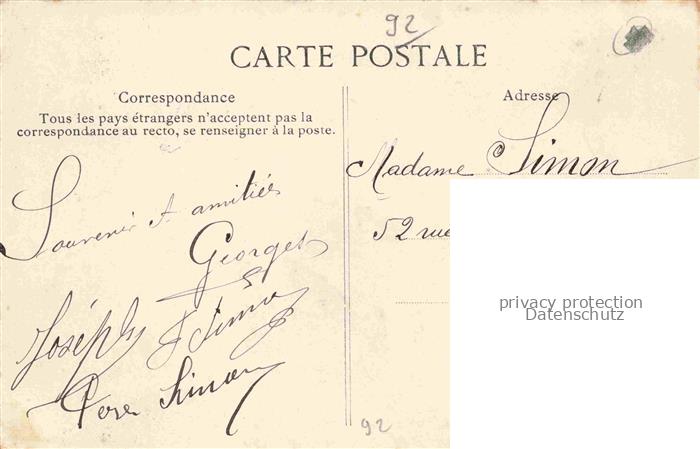 92
CARTE POSTALE
Correspondance
Tous les pays étrangers n'acceptent pas la
correspondance au recto, se renseigner à la poste.
Souvenir et amitiés
Georges
Joseph Simon
Père Simon
92
Adresse
Madame Simon
52 rue
privacy protection
Datenschutz